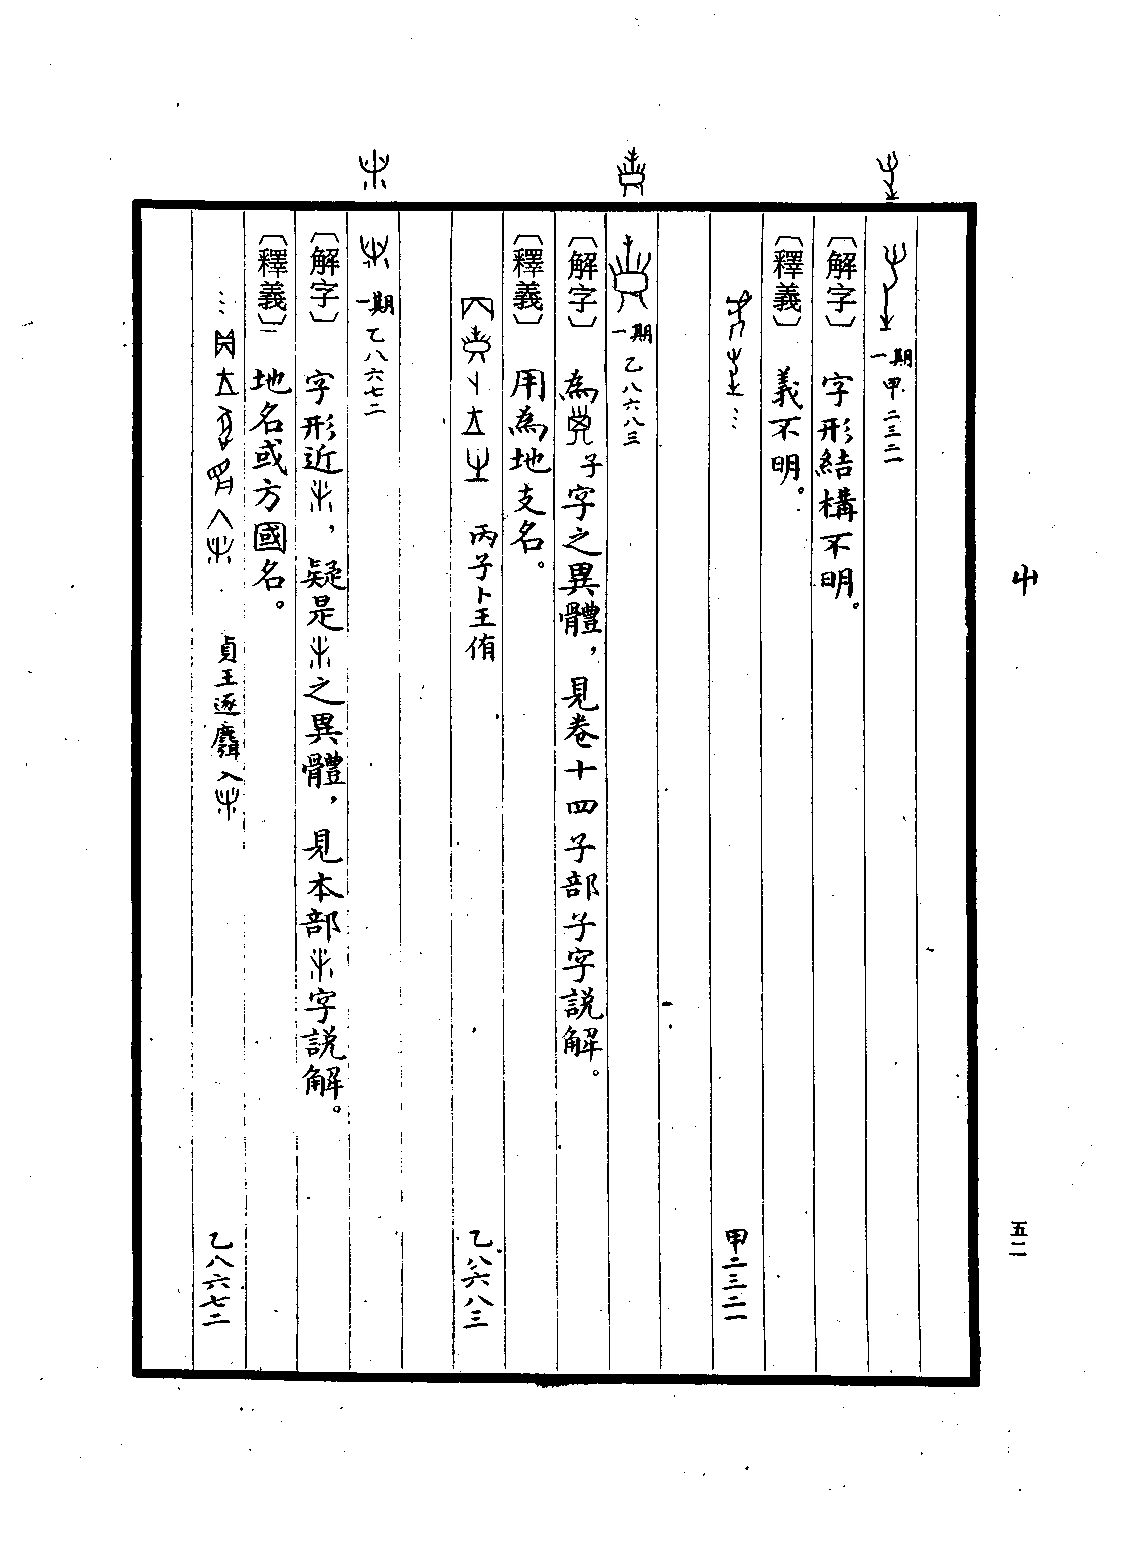 屮
五二
一期 甲二三二一
〔解字〕 字形結構不明。
〔釋義〕 義不明。
… 甲二三二一
一期 乙八六八三
〔解字〕 為子字之異體，見卷十四子部子字說解。
〔釋義〕 用為地支名。
丙子卜王侑 乙八六八三
一期 乙八六七二
〔解字〕 字形近，疑是之異體，見本部字說解。
〔釋義〕 地名或方國名。
… 貞王逐入 乙八六七二